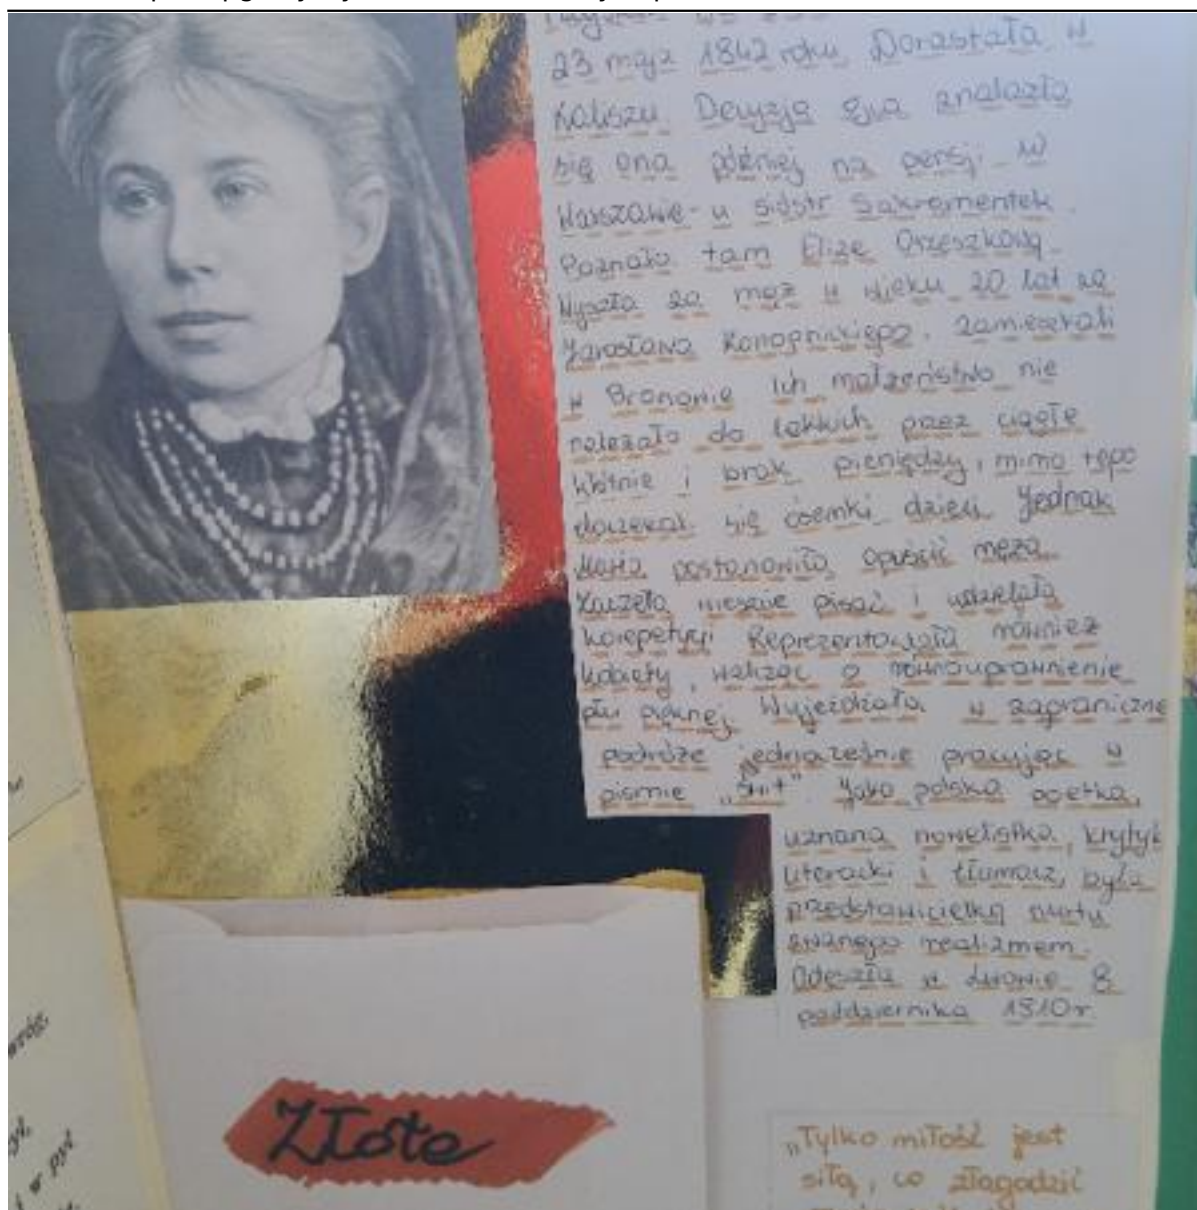 23 maja 1842 roku. Dorastała w
Kaliszu. Decyzją ojca znalazła
się ona później na pensji w
Warszawie - u sióstr Sakramentek.
Poznała tam Elizę Orzeszkową.
Wyszła za mąż w wieku 20 lat za
Jarosława Konopnickiego. Zamieszkali
w Bronowie. Ich małżeństwo nie
należało do lekkich przez ciągłe
kłótnie i brak pieniędzy, mimo tego
doczekali się ósemki dzieci. Jednak
Maria postanowiła opuścić męża.
Zaczęła pisać i udzielała
korepetycji. Reprezentowała również
kobiety, walcząc o równouprawnienie
płci pięknej. Wyjeżdżała w zagraniczne
podróże jednocześnie pracując w
piśmie „Świt". Jako polska poetka,
uznana nowelistka, krytyk
literacki i tłumacz, była
przedstawicielką nurtu
zwanego realizmem.
Odeszła w Lwowie 8
października 1910r.
Złote
„Tylko miłość jest
siłą, co złagodzić
wróg,
w pył